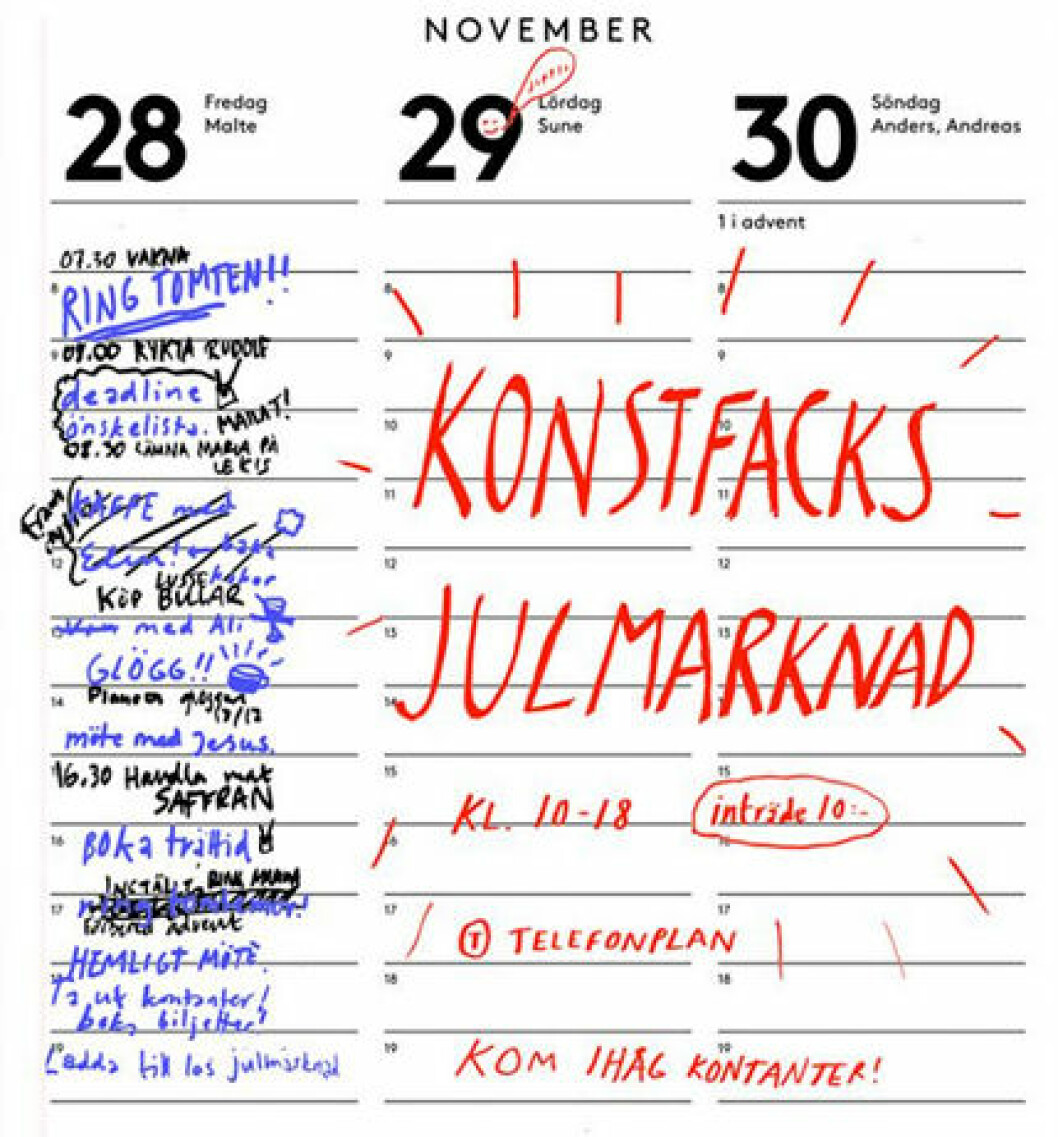 NOVEMBER
28 Fredag
Malte
29 Lördag
Sune
30 Söndag
Anders, Andreas
1 i advent
07.30 VAKNA
RING TOMTEN!!
08.00 RYKTA RUDOLF
deadline
önskelista. MAILAT!
08.30 LÄMNA MARIA PÅ
LEKIS
KAFFE med
Elin! baka
LUSSE kakor
KÖP BULLAR
med Ali
GLÖGG!!
Planera glöggen
13/12
möte med Jesus.
16.30 Handla mat
SAFFRAN
BOKA trälltid
INSTÄLLT, RING MAMMA
ring kontanter!
advent
HEMLIGT MÖTE.
Ta ut kontanter!
boka biljetter!
Ladda till los julmarknad
8
9
10
11
12
13
14
15
16
17
18
19
KONSTFACKS
JULMARKNAD
KL. 10-18
inträde 10:-
T TELEFONPLAN
KOM IHÅG KONTANTER!